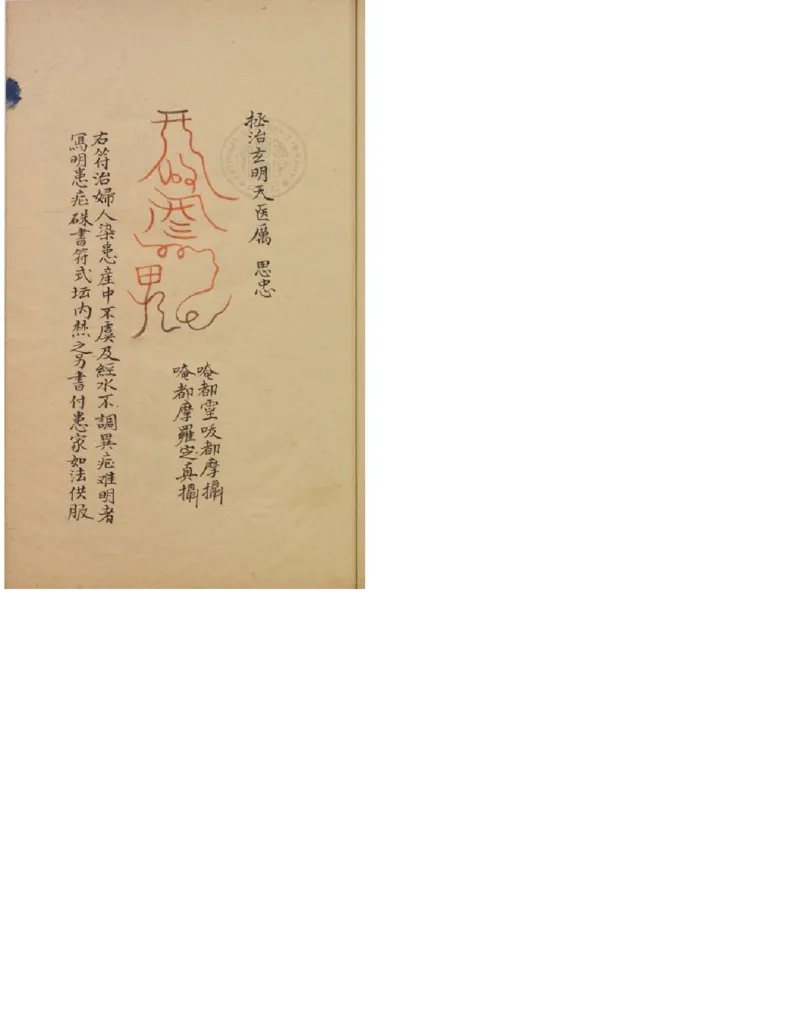 拯治玄明天医厲 思忠
唵都霊吺都摩攝
唵都摩羅定真攝
右符治婦人染患產中不虞及經水不調異症难明者
寫明患症硃書符式坛内焚之另書付患家如法供服